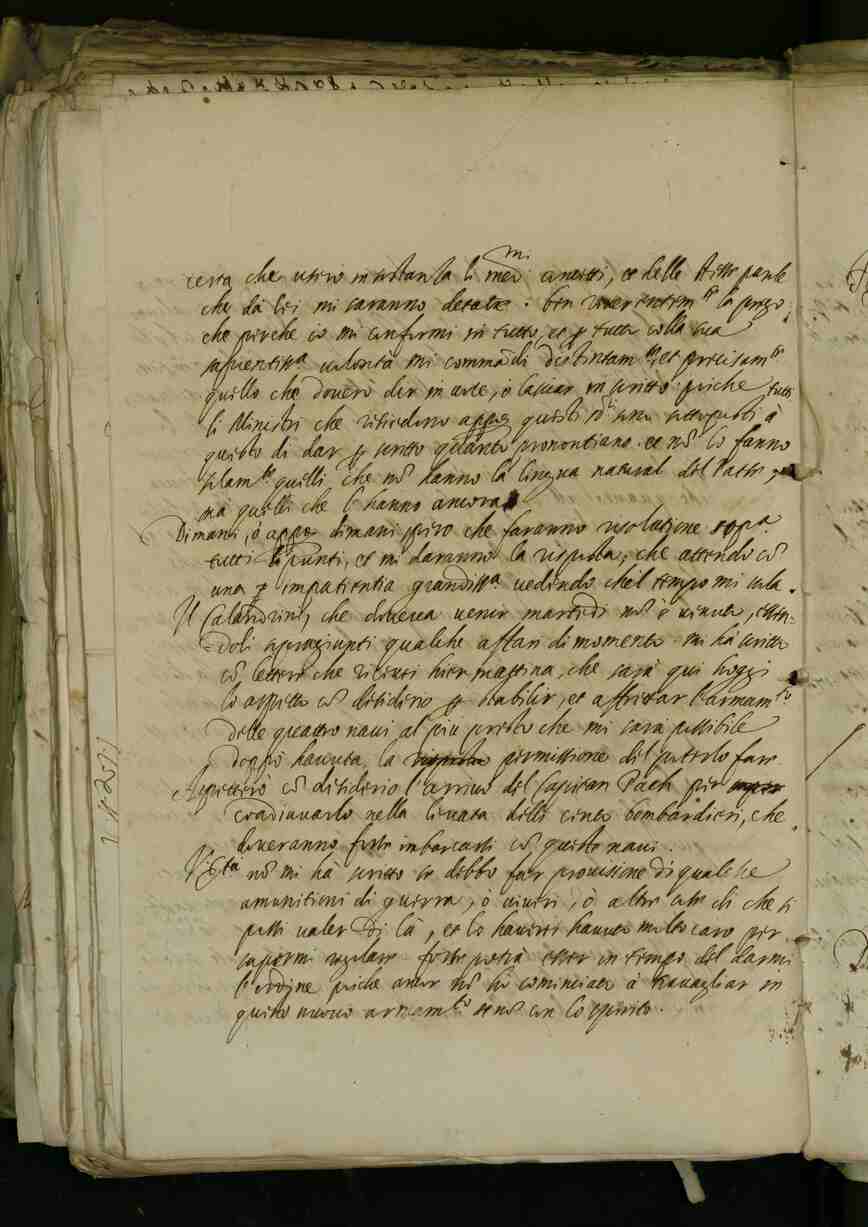 certa che userò in sostanza li med.mi concetti, et delle stesse parole
che da lei mi saranno dettate. Ben riverentem.te la prego,
che perche io mi conformi in tutto, et p tutto colla sua
sapientiss.a volontà mi commãdi distintam.te, et precisam.te
quello che doverò dir in voce, ò lasciar in scritto perche tutti
li Ministri che risiedono appo questi SS.ri sono sottoposti à
questo di dar p scritto quanto pronontiano. et nõ lo fanno
solam.te quelli che nõ hanno la lingua natural del Paese,
ma quelli che l'hanno ancora
Dimani, ò appo dimani spero che faranno resolutione sopra
tutti li Punti, et mi daranno la risposta, che attendo cõ
una impatientia grandiss.a vedendo che'l tempo mi vola.
Il Calandrini, che doveva venir martedi nõ è venuto, essen-
doli sopragiunti qualche affari di momento. mi hà scritto
cõ lettere che ricevei hier mattina, che sarà qui hoggi
lo aspetto cõ desiderio p stabilir, et affrettar l'armam.to
delle quattro navi al più presto che mi sarà possibile
doppò havuta la permissione del poterlo fare
Aspetterò cõ desiderio l'arrivo del Capitan Pach per
coadiuvarlo nella levata delli cento bombardieri, che
doveranno forse imbarcarsi cõ queste navi.
V. Ec.tà nõ mi hà scritto se debbo far provisione di qualche
amonitioni di guerra, ò viveri, ò altre cose di che si
possi valer di là, et lo haverei havuto molto caro per
sapermi regolare forse potrà esser in tempo del darmi
l'ordine perche ancor nõ hò cominciato à travagliar in
questo nuovo armam.to se nõ con lo spirito.